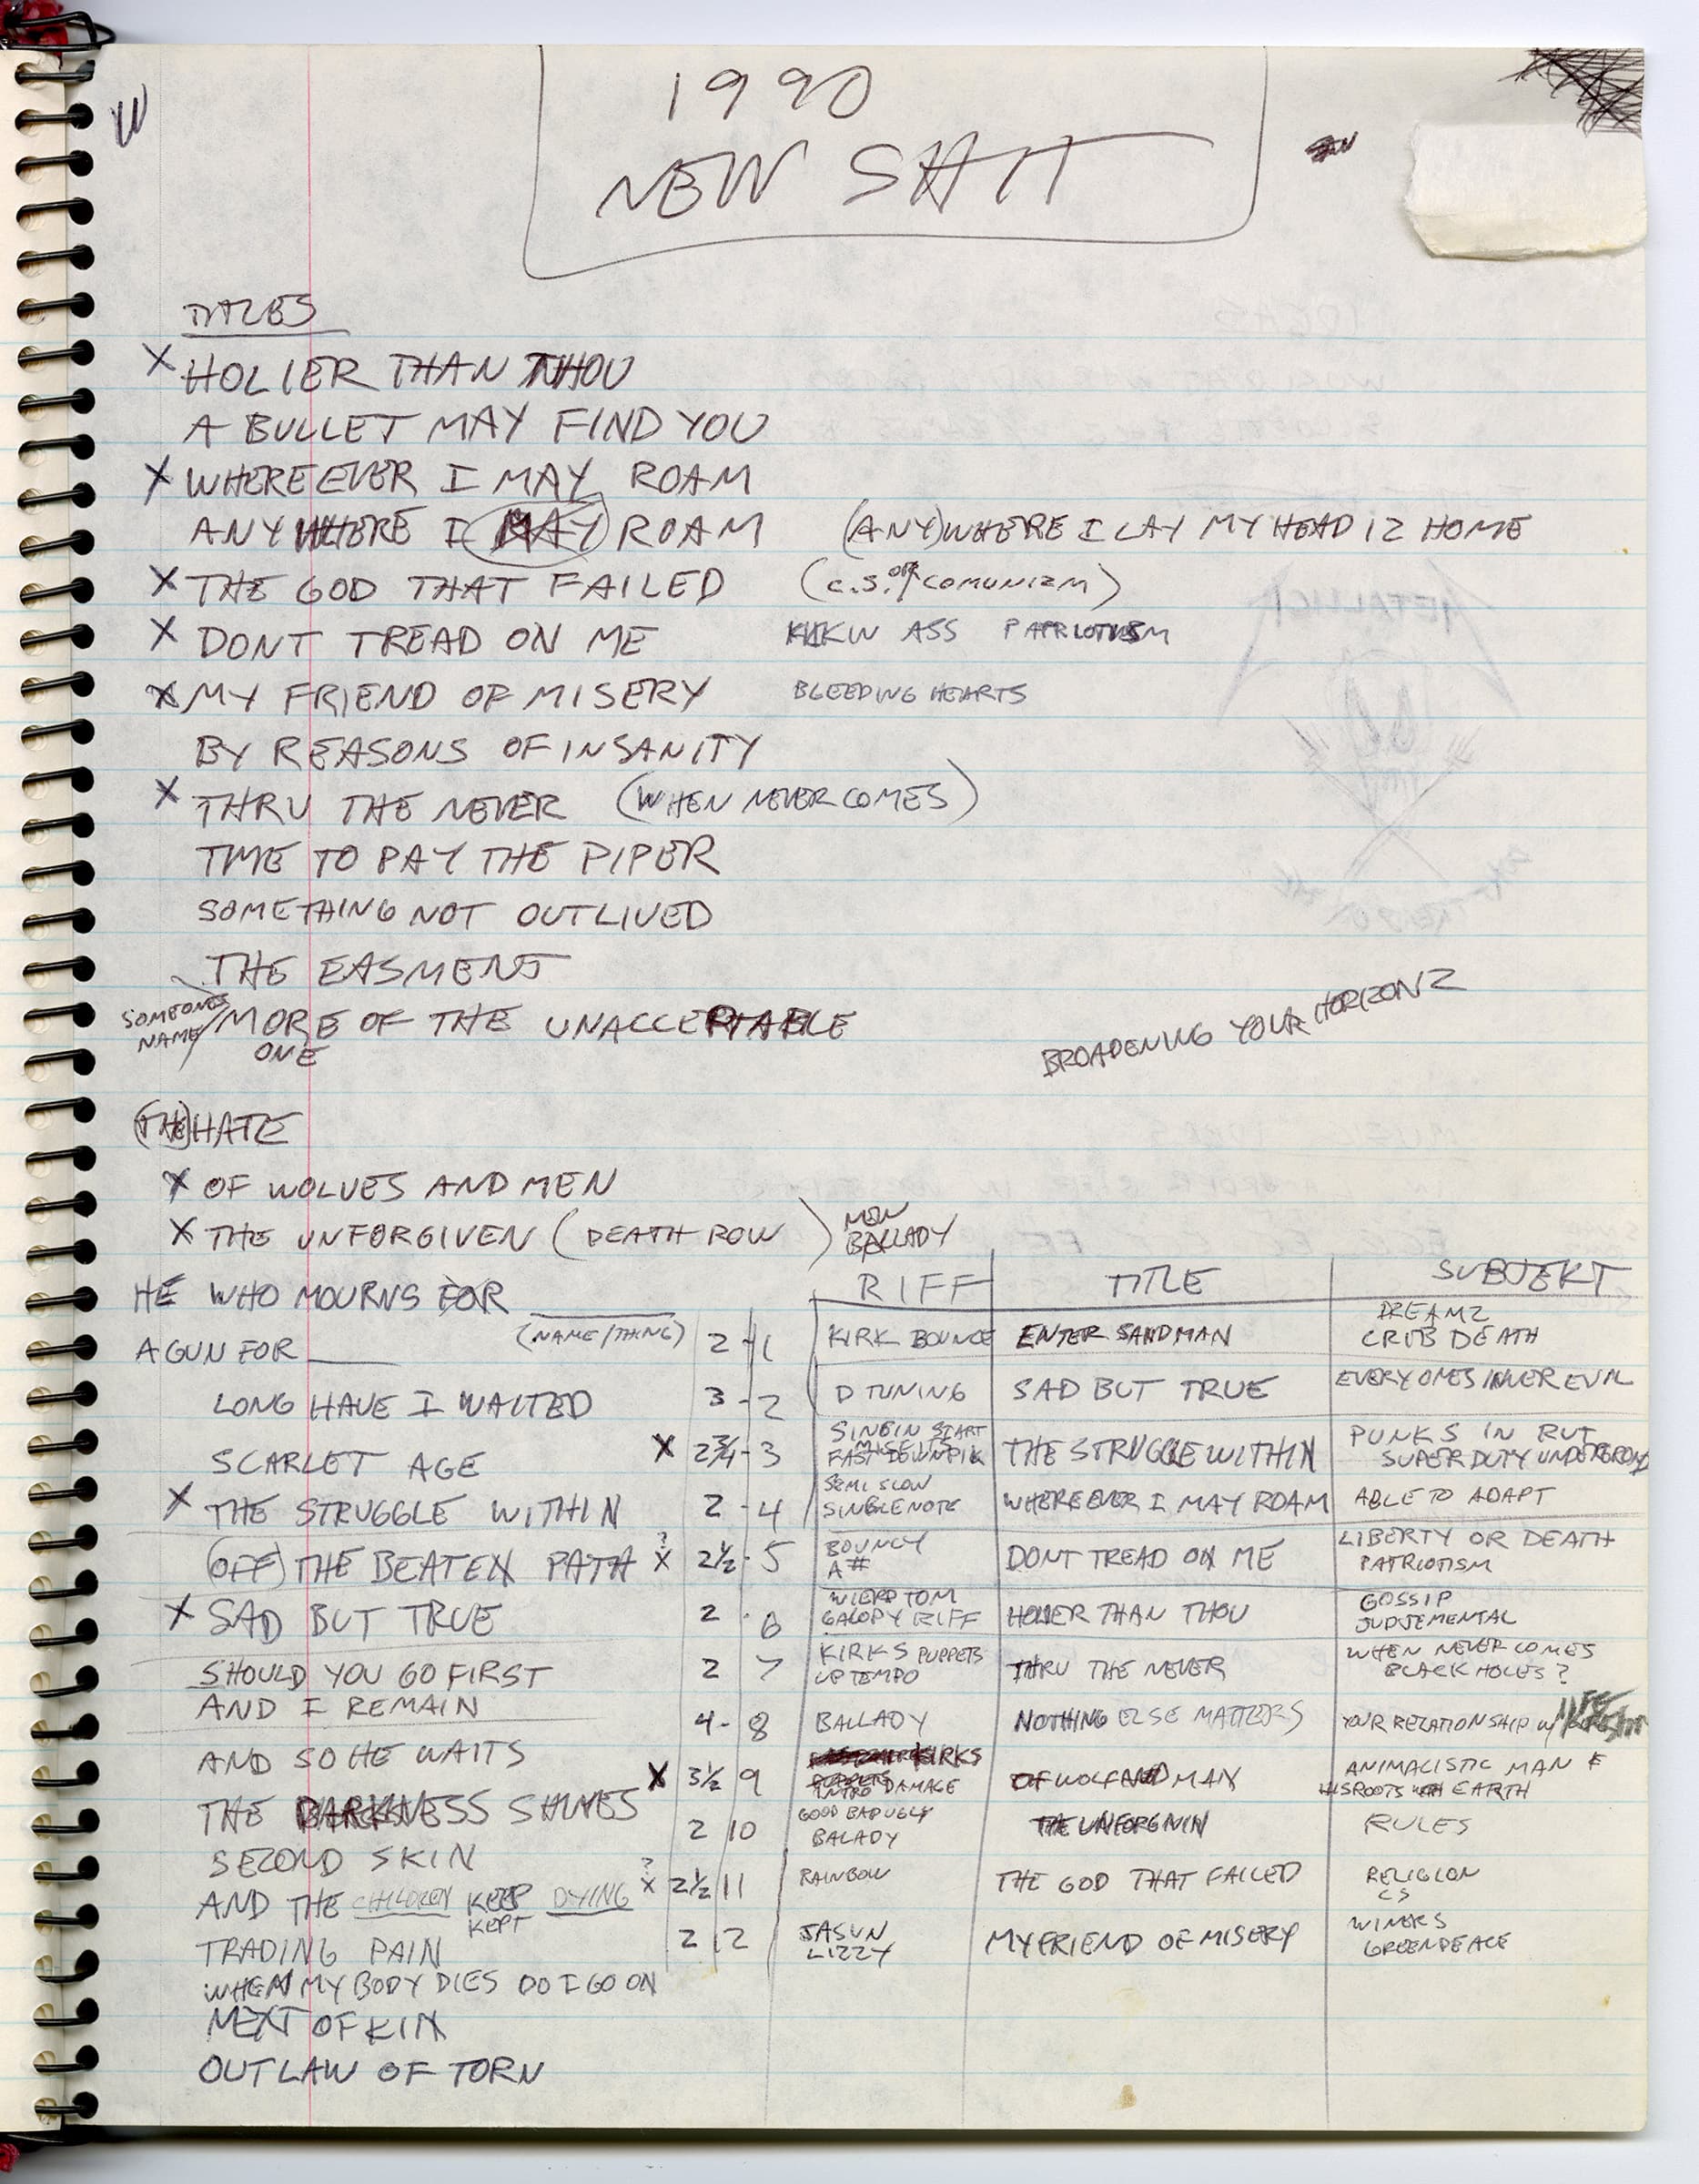 1990
NEW SHIT
TITLES
X HOLIER THAN THOU
A BULLET MAY FIND YOU
X WHEREEVER I MAY ROAM
ANYWHERE I MAY ROAM (ANY)WHERE I LAY MY HEAD IZ HOME
X THE GOD THAT FAILED (C.S. OR COMUNIZM)
X DONT TREAD ON ME ASS PATRIOTISM
X MY FRIEND OF MISERY BLEEDING HEARTS
BY REASONS OF INSANITY
X THRU THE NEVER (WHEN NEVER COMES)
TIME TO PAY THE PIPER
SOMETHING NOT OUTLIVED
THE EASMENT
SOMEONES NAME / MORE OF THE UNACCEPTABLE
ONE
BROADENING YOUR HORIZONZ
(THE) HATE
X OF WOLVES AND MEN
X THE UNFORGIVEN (DEATH ROW) BALLADY
HE WHO MOURNS FOR ____
(NAME/THING)
A GUN FOR ____
LONG HAVE I WAITED
SCARLET AGE
X THE STRUGGLE WITHIN
(OFF) THE BEATEN PATH
X SAD BUT TRUE
SHOULD YOU GO FIRST
AND I REMAIN
AND SO HE WAITS
THE DARKNESS SHINES
SECOND SKIN
AND THE CHILDREN KEEP DYING
KEPT
TRADING PAIN
WHEN MY BODY DIES DO I GO ON
NEXT OF KIN
OUTLAW OF TORN
RIFF TITLE SUBJEKT
2 - 1 KIRK BOUNCE ENTER SANDMAN DREAMZ
CRIB DEATH
3 - 2 D TUNING SAD BUT TRUE EVERYONES INNER EVIL
X 2 3/4 - 3 START
FAST DOWNPIK THE STRUGGLE WITHIN PUNKS IN RUT
SUPER DUTY UNDERGROND
2 - 4 SEMI SLOW
SINGLE NOTE WHEREEVER I MAY ROAM ABLE TO ADAPT
? X 2 1/2 - 5 BOUNCY
A# DONT TREAD ON ME LIBERTY OR DEATH
PATRIOTISM
2 - 6 WIERD TOM
GALOPY RIFF HOLIER THAN THOU GOSSIP
JUDJEMENTAL
2 7 KIRKS PUPPETS
UP TEMPO THRU THE NEVER WHEN NEVER COMES
BLACK HOLES?
4 - 8 BALLADY NOTHING ELSE MATTERS YOUR RELATIONSHIP W/
X 3 1/2 9 KIRKS
INTRO DAMAGE OF WOLF AND MAN ANIMALISTIC MAN &
HIS ROOTS EARTH
2 10 GOOD BAD UGLY
BALADY THE UNFORGIVIN RULES
? X 2 1/2 11 RAINBOW THE GOD THAT FAILED RELIGION
CS
2 12 JASUN
LIZZY MY FRIEND OF MISERY WINERS
GREENPEACE